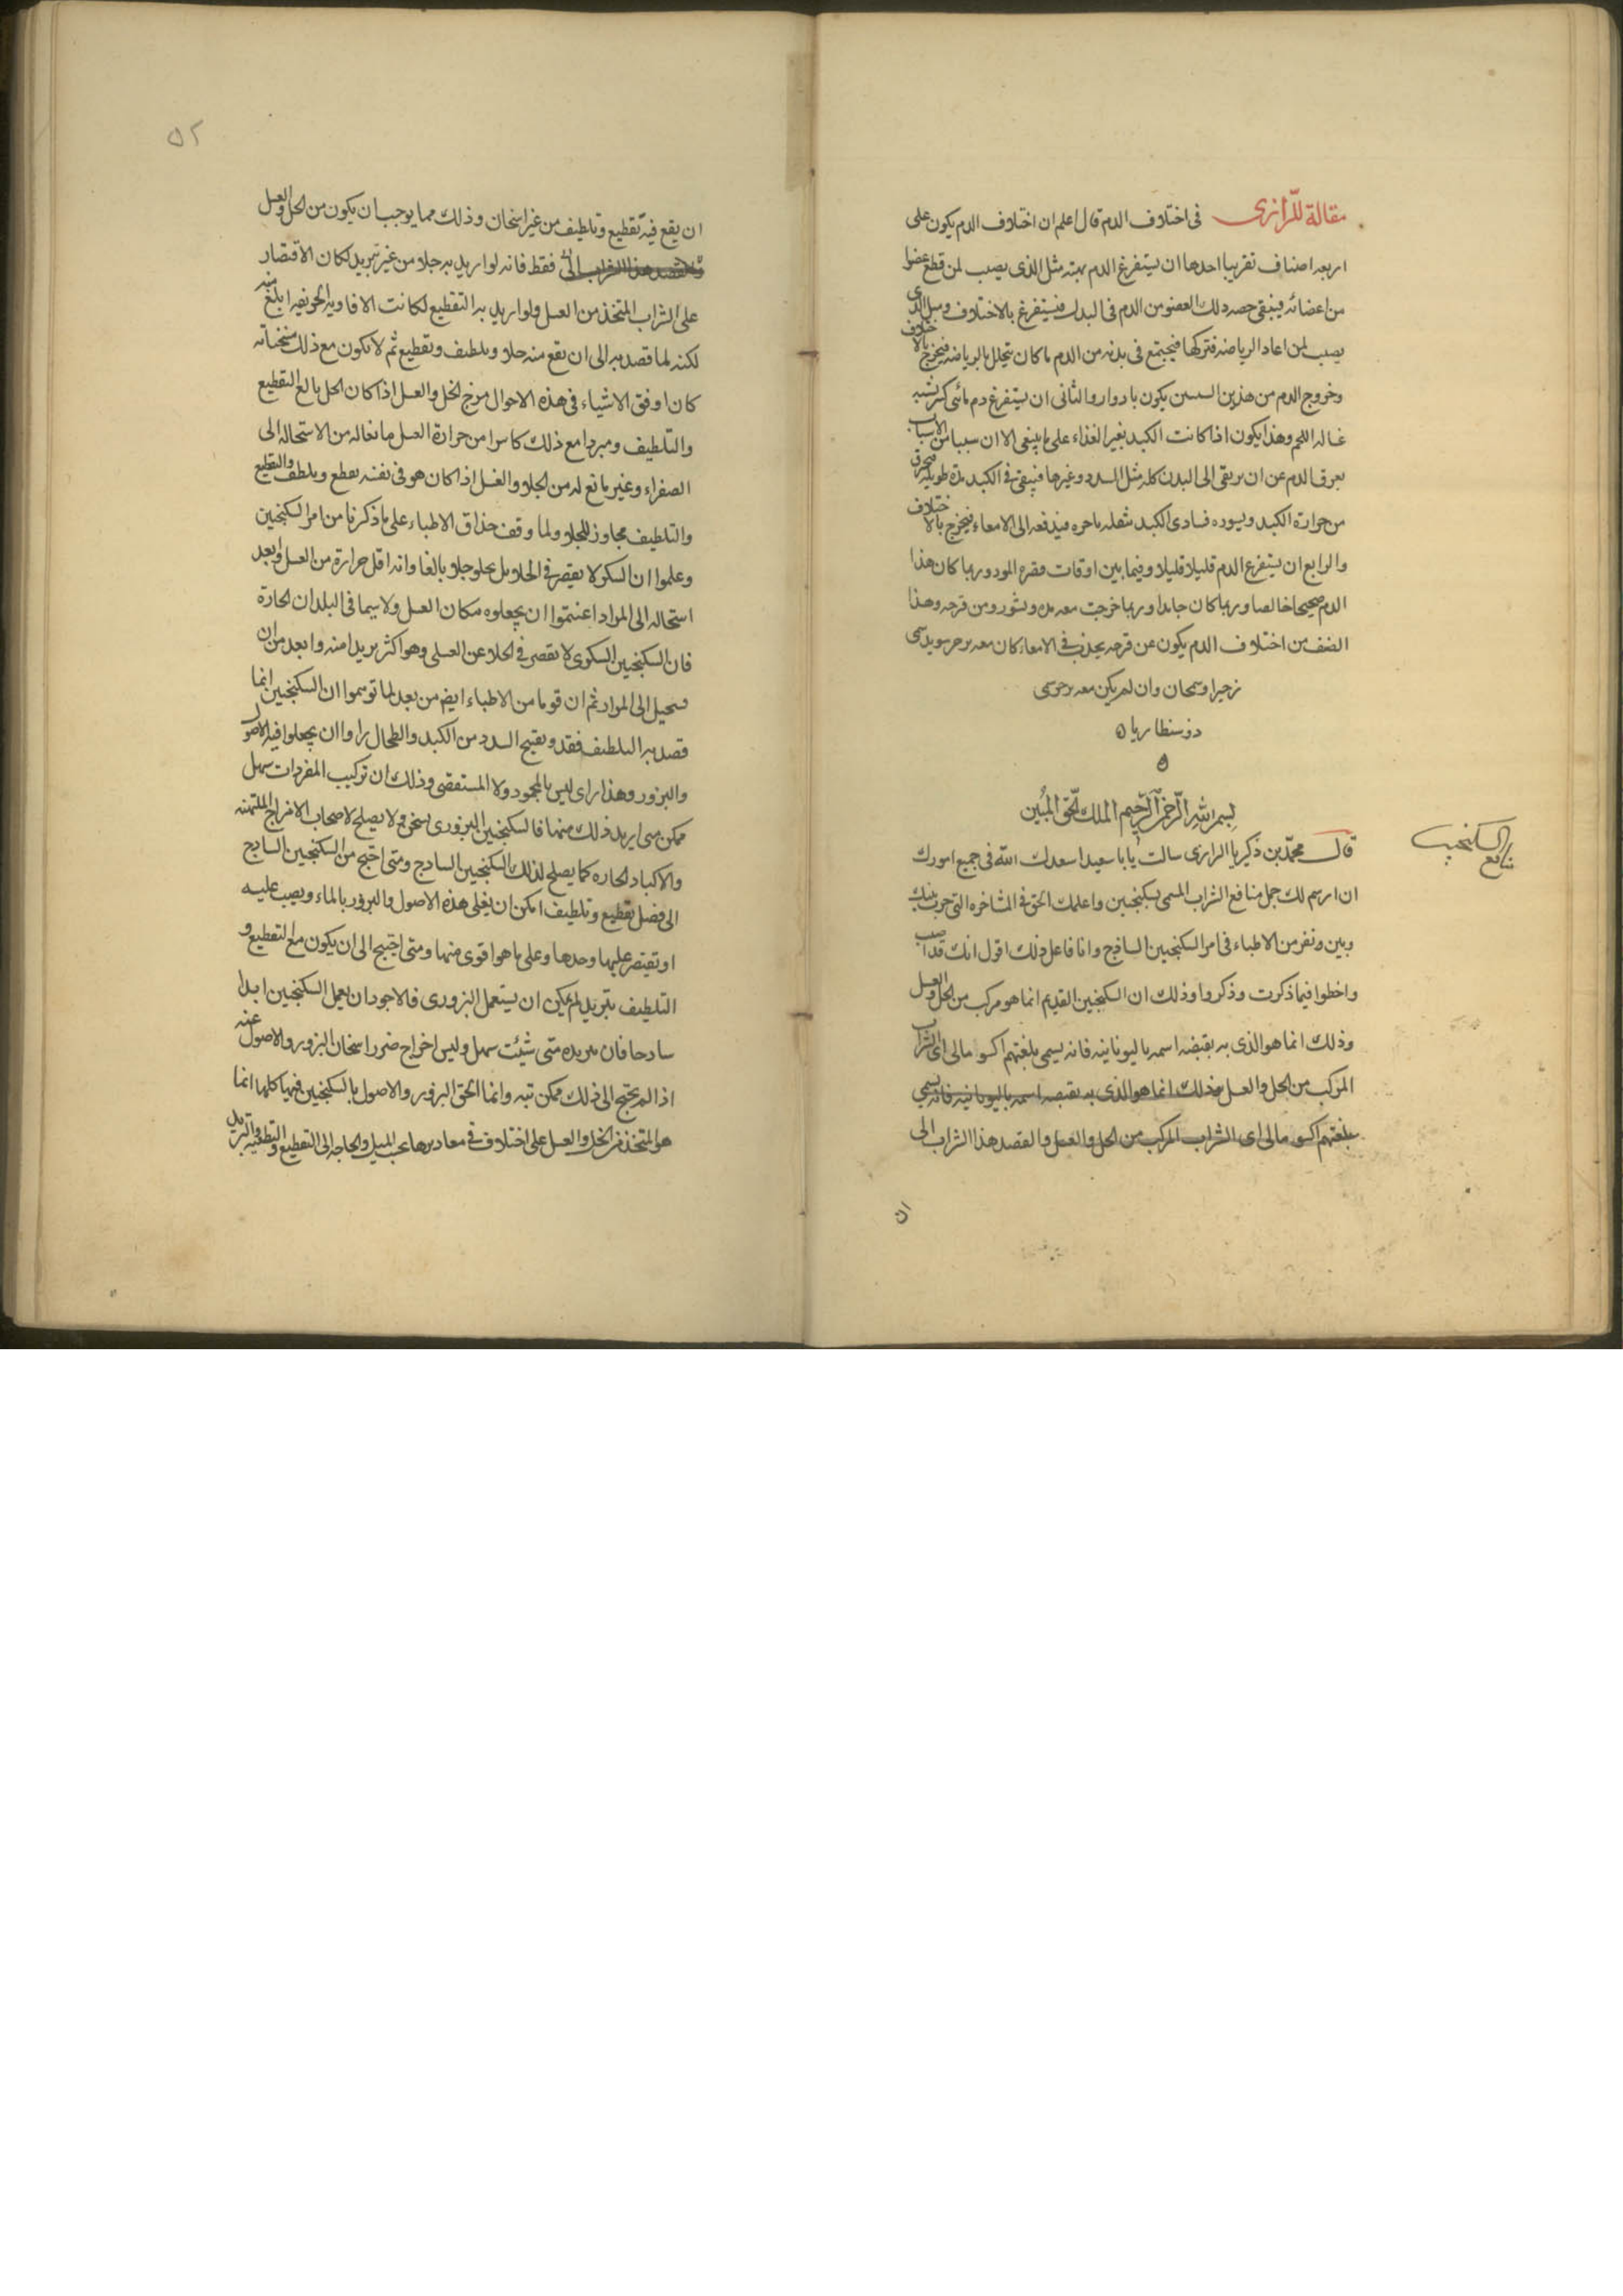 مقالة للرازى فى اختلاف الدم قال اعلم ان اختلاف الدم يكون على
اربعه اصناف تقريبا احدها ان يستفرغ الدم بمثل الذى يصيب لمن قطع عضوا
من اعضائه فيبقى حصه ذلك العضو من الدم فى البدن فيستفرغ بالاختلاف ومثل الذى
يصيب لمن اعاد الرياضه فتركها فيجتمع فى بدنه من الدم ما كان يتحلل بالرياضه فيخرج بالاختلاف
وخروج الدم من هذين السببين يكون بادوار والثانى ان يستفرغ دم مائى كثر شبيه
غساله اللحم وهذا يكون اذا كانت الكبد بغير الغذاء على ما ينبغى الا ان سببا من الاسباب
يعوق الدم عن ان يرتقى الى البدن كله مثل السدد وغيرها فيبقى فى الكبد مدة طويله فيحرق
من حرارة الكبد ويسوده فتاذى الكبد بثقله باخره فيدفعه الى الامعاء فيخرج بالاختلاف
والرابع ان يستفرغ الدم قليلا قليلا وفيما بين اوقات المودود ربما كان هذا
الدم صحيحا خالصا وربما كان جامدا وربما خرجت معه مده وبثور ومن قرحه وهذا
الصنف من اختلاف الدم يكون عن قرحه تحدث فى الامعاء كان معه تزحر سويدسى
زحيرا وسحجان وان لم يكن معه تزحر سمى
دوسنطاريا ه
ه
بسم الله الرحمن الرحيم الملك الحق المبين
منافع السكنجبين
قال محمد بن زكريا الرازى سالت يابا سعيد اسعدك الله فى جميع امورك
ان ارسم لك جمل منافع الشراب المسمى بسكنجبين واعلمك الحق فى المشاخره التى جرت بينك
وبين ونفر من الاطباء فى امر السكنجبين الساذج وانا فاعل ذلك اقول انك قد اصبت
واخطوا فيما ذكرت وذكروا وذلك ان السكنجبين القديم انما هو مركب من الخل والعسل
وذلك انما هو الذى به يقتضه اسمه باليونانيه فانه يسمى بلغتهم اكسومالى اى الشراب
المركب من الخل والعسل وذلك انما هو الذى به يقتضه اسمه باليونانيه فانه يسمى
بلغتهم اكسومالى اى الشراب المركب من الخل والعسل والقصد هذا الشراب الى
ان
٥٢
ان يقع فيه تقطيع وتلطيف من غير اسخان وذلك مما يوجب ان يكون من الخل والعسل
والقصد هذا الشراب الى فقط فانه لو اريد به جلا من غير تبريد لكان الاقتصار
على الشراب المتخذ من العسل ولو اريد به التقطيع لكانت الافاويه الحريفه ابلغ منه
لكنه لما قصد به الى ان يقع منه جلاء وتلطيف وتقطيع ثم لا يكون مع ذلك سخانه
كان اوفق الاشياء فى هذه الاحوال مزج الخل والعسل اذا كان الخل بالغ التقطيع
والتلطيف ومبردا مع ذلك كاسرا من حرارة العسل مانعا له من الاستحاله الى
الصفراء وغير مانع له من الجلاء والعسل اذا كان هو فى نفسه يقطع ويلطف والتقطيع
والتلطيف مجاوز للجلاء ولما وقف حذاق الاطباء على ما ذكرنا من امر السكنجبين
وعلموا ان السكر لا يقصر فى الجلاء بل يجلو جلاء بالغا وانه اقل حرارة من العسل وابعد
استحاله الى المرار اعتمتوا ان يجعلوه مكان العسل ولا سيما فى البلدان الحارة
فان السكنجبين السكرى لا يقصر فى الجلاء عن العسلى وهو اكثر تبريدا منه وابعد من ان
يستحيل الى المرار ثم ان قوما من الاطباء ايضا من بعد لما توسموا ان السكنجبين انما
قصد به التلطيف فقد وتفتيح السدد من الكبد والطحال راوا ان يجعلوا فيه الاصول
والبزور وهذا راى ليس بالمحمود ولا المستقصى وذلك ان تركيب المفردات سهل
ممكن متى اريد ذلك منها فالسكنجبين البزورى يسخن ولا يصلح لاصحاب الامزاج الملتهبه
والاكباد الحاره كما يصلح لذلك السكنجبين الساذج ومتى احتيج من السكنجبين الساذج
الى فضل تقطيع وتلطيف امكن ان يغلى هذه الاصول والبزور بالماء ويصب عليه
او يقتصر عليها وحدها وعلى ما هو اقوى منها ومتى احتيج الى ان يكون مع التقطيع و
التلطيف تبريد لم يمكن ان يستعمل البزورى فالاجود ان يعمل السكنجبين ابدا
ساذجا فان تبريده متى شئت سهل وليس اخراج ضرر اسخان البزور والاصول عنه
اذا لم يحتج الى ذلك ممكن تبه وانما الحق البزور والاصول بالسكنجبين فهيا كلها انما
هو المتخذ من الخل والعسل على اختلاف فى مقاديرها بحسب الميل والحاجه الى التقطيع والتطفيه والتبريد